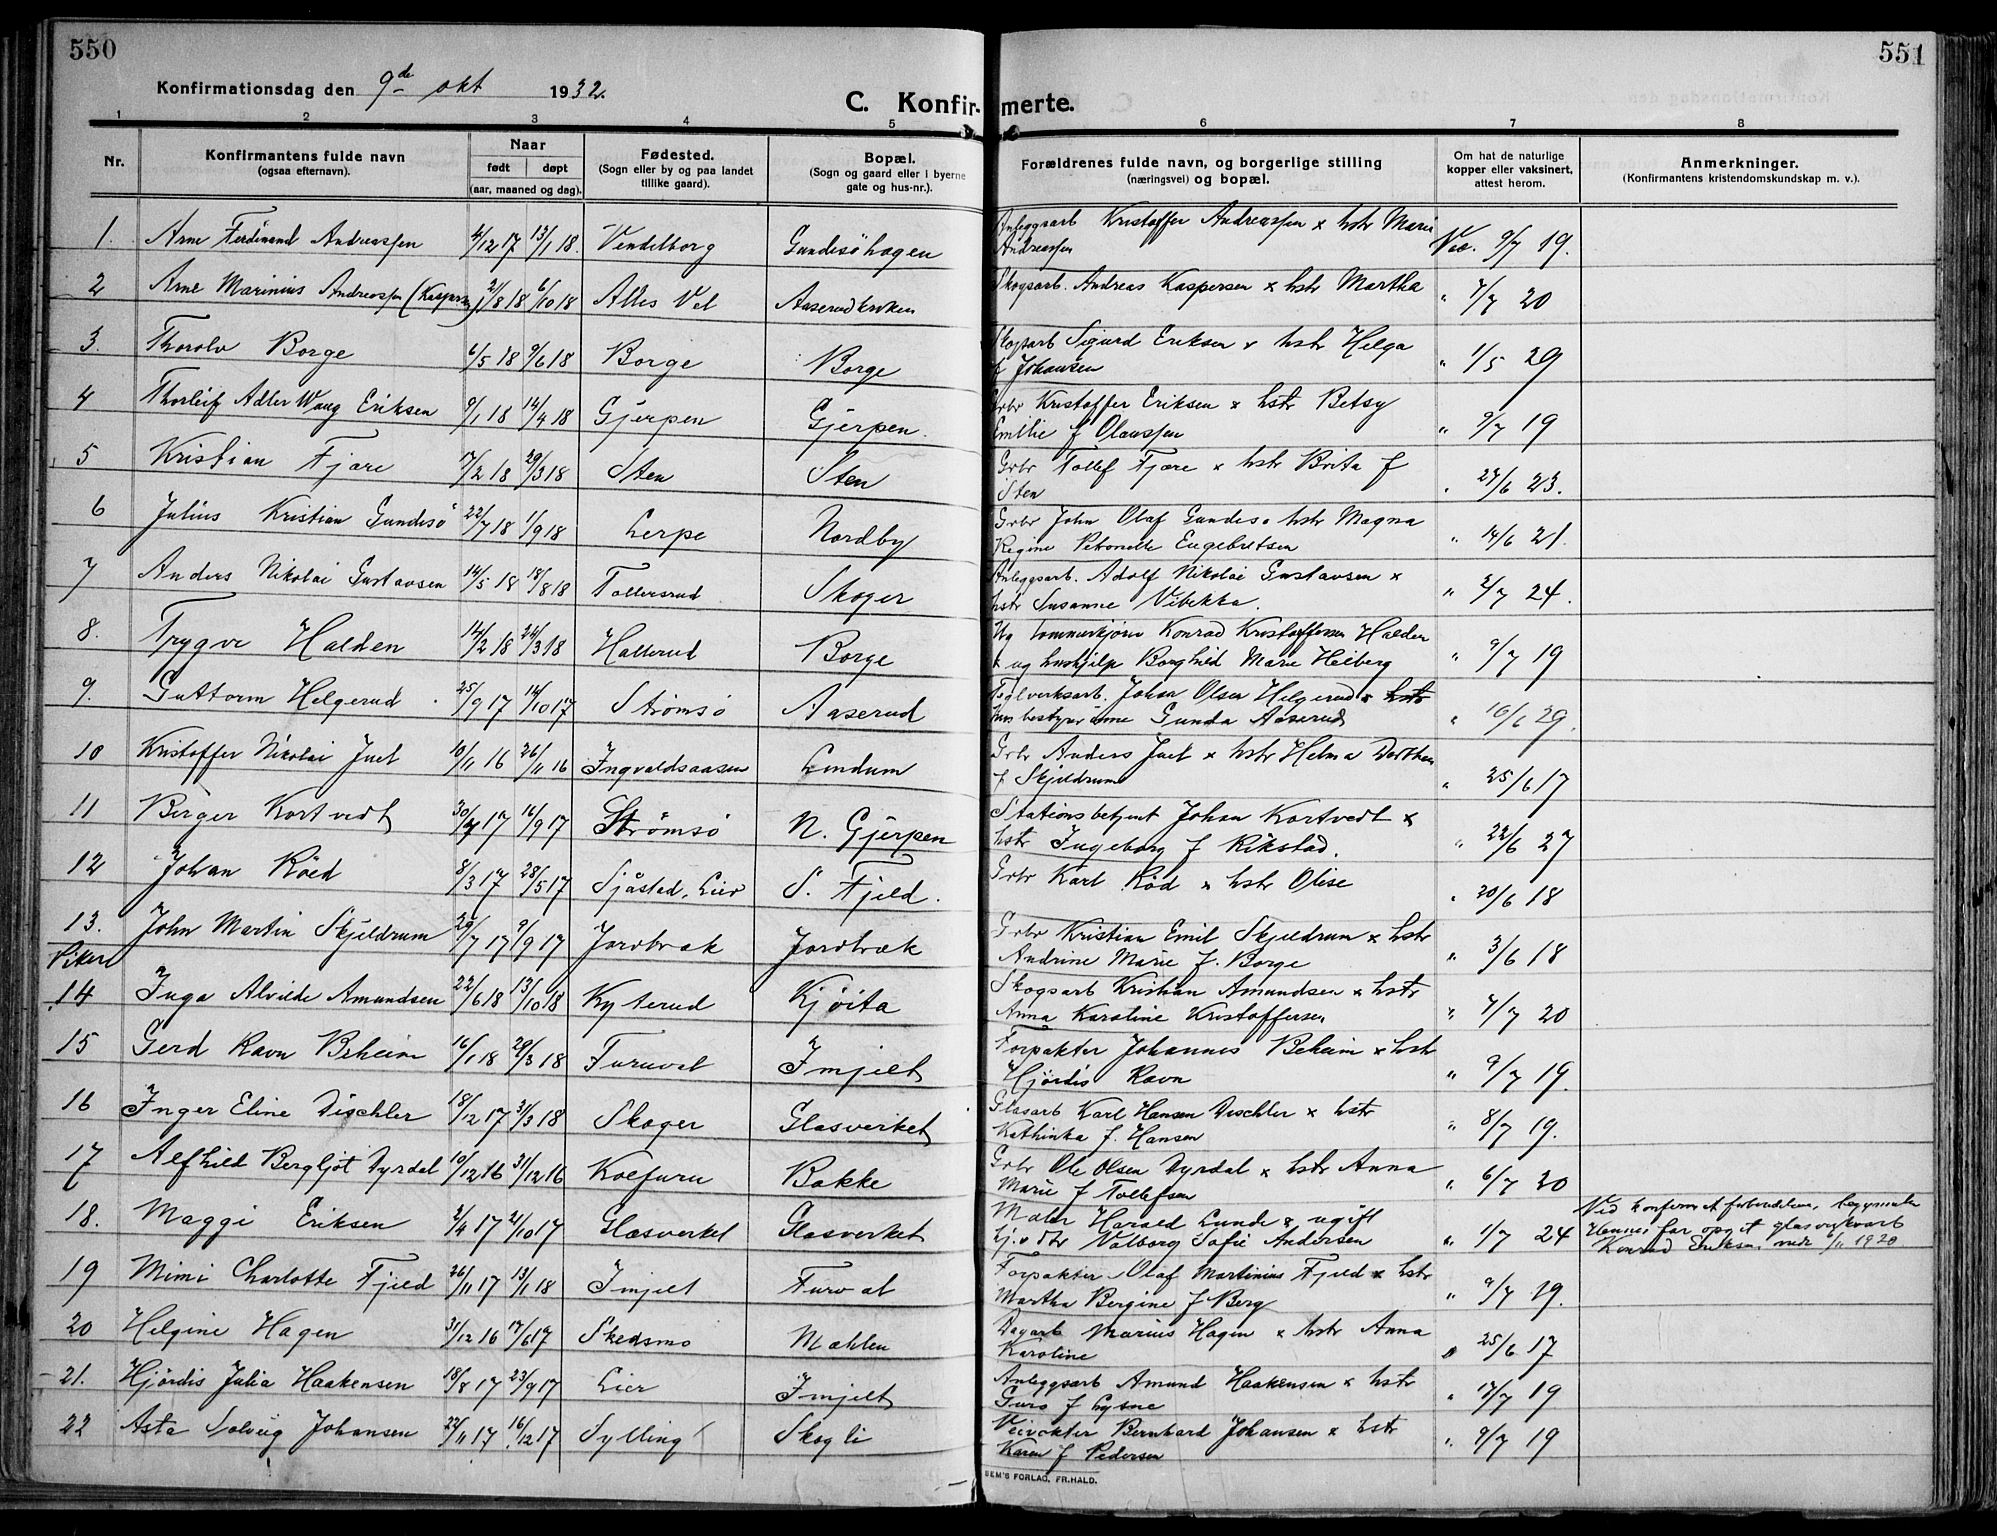 550
551
Konfirmationsdag den 9de okt 1932.
C. Konfir- merte.
1 2 3 4 5 6 7 8
Nr.
Konfirmantens fulde navn
(ogsaa efternavn).
Naar
født døpt
(aar, maaned og dag).
Fødested.
(Sogn eller by og paa landet
tillike gaard).
Bopæl.
(Sogn og gaard eller i byerne
gate og hus-nr.).
Forældrenes fulde navn, og borgerlige stilling
(næringsvei) og bopæl.
Om hat de naturlige
kopper eller vaksinert,
attest herom.
Anmerkninger.
(Konfirmantens kristendomskundskap m. v.).
1. Arne Ferdinand Andreassen 4/12 17 13/1 18. Vendelborg Gundesöhagen Anleggsarb Kristoffer Andreassen x hstr Marie
Andreassen Vac. 9/7 19.
2 Arne Marinius Andreassen (Kaspersen) 2/8 18 6/10 18 Alles Vel Aaserudkroken Skogsarb. Andreas Kaspersen x hstr Martha " 7/7 20
3. Thorolv Borge 6/5 18 9/6 18 Borge Borge Skogsarb Sigurd Eriksen x hstr Helga
f Johansen " 1/5 29
4 Thorleif Adler Waug Eriksen 9/1 18 14/4 18 Gjerpen Gjerpen. Grbr Kristoffer Eriksen x hstr Betsy
Emilie f Olaussen " 9/7 19
5 Kristian Fjære 7/2 18 29/3 18 Sten Sten Grbr Tollef Fjære x hstr Brita f
Sten " 27/6 23.
6 Julius Kristian Gundesö 22/7 18 1/9 18 Lerpe Nordby Grbr John Olaf Gundesö hstr Magna
Regine Petonelle Engebretsen " 14/6 21.
7 Anders Nikolai Gustavsen 14/5 18 18/8 18 Tollersrud Skoger Anleggsarb. Adolf Nikolai Gustavsen x
hstr Susanne Vibekka. " 2/7 24.
8. Trygve Halden 14/2 18 24/3 18 Hallerud Borge Ug tømmerkjører Konrad Kristoffersen Halden
x ug hushjelp Borghild Marie Heiberg " 9/7 19
9. Guttorm Helgerud 25/9 17 14/10 17 Strömsö Aaserud Teglverksarb. Johan Olsen Helgerud x hstr
husbestyrerinne Gunda Aaserud " 10/6 29.
10 Kristoffer Nikolai Juel 10/11 16 26/11 16 Ingvaldsaasen Lindum Grbr Anders Juel x hstr Helma Dorthea
f Skjeldrum " 25/6 17
11 Berger Kortvedt 30/7 17 16/9 17 Strømsö N. Gjerpen Stationsbetjent Johan Kortvedt x
hstr Ingeborg f Rikstad. " 22/6 27
12 Johan Röed 8/3 17 28/5 17 Sjåstad, Lier S. Fjeld. Grbr Karl Röd x hstr Olise " 20/6 18
13. John Martin Skjeldrum 29/7 17 9/9 17 Jordbræk Jordbræk Grbr Kristian Emil Skjeldrum x hstr
Andrine Marie f. Borge " 3/6 18
Piker
14 Inga Alvilde Amundsen 22/6 18 13/10 18 Kyterud Kjøita Skogsarb Kristian Amundsen x hstr
Anna Karoline Kristoffersen " 7/7 20
15 Gerd Ravn Beheim 16/1 18 29/3 18 Furuvel Imjelt Forpakter Johannes Beheim x hstr
Hjördis Ravn " 9/7 19.
16 Inger Eline Dischler 18/12 17 31/3 18 Skoger Glasverket Glasarb Karl Hansen Dischler x hstr
Kathinka f. Hansen " 8/7 19.
17 Alfhild Bergljot Dyrdal 10/12 16 31/12 16 Kolfuru Bakke Grbr Ole Olsen Dyrdal x hstr Anna
Marie f Tollefsen " 6/7 20
18. Maggi Eriksen 2/4 17 21/10 17 Glasverket Glasverket Maler Harald Lunde x ugift
tj. v dtr Valborg Sofie Andersen " 1/7 24 Ved konferm et
Hennes far opgit glasverksarb
Konrad Eriksen 6/11 1920
19 Mimi Charlotte Fjeld 26/11 17 13/1 18 Imjelt Furuval Forpakter Olaf Martinius Fjeld x hstr
Martha Bergine f Berg " 9/7 19.
20 Helgine Hagen 31/12 16 17/6 17 Skedsmo Mæhlen Dagarb Marius Hagen x hstr Anna
Karoline " 25/6 17
21. Hjördis Julia Haakensen 18/8 17 23/9 17 Lier Imjelt Anleggsarb Amund Haakensen x hstr
Guro f Lysne " 17/7 19
22 Asta Solveig Johansen 22/11 17 16/12 17 Sylling Skogli Veivokter Bernhard Johansen x hstr
Karen f Pedersen " 9/7 19
SEM'S FORLAG, FR.HALD.